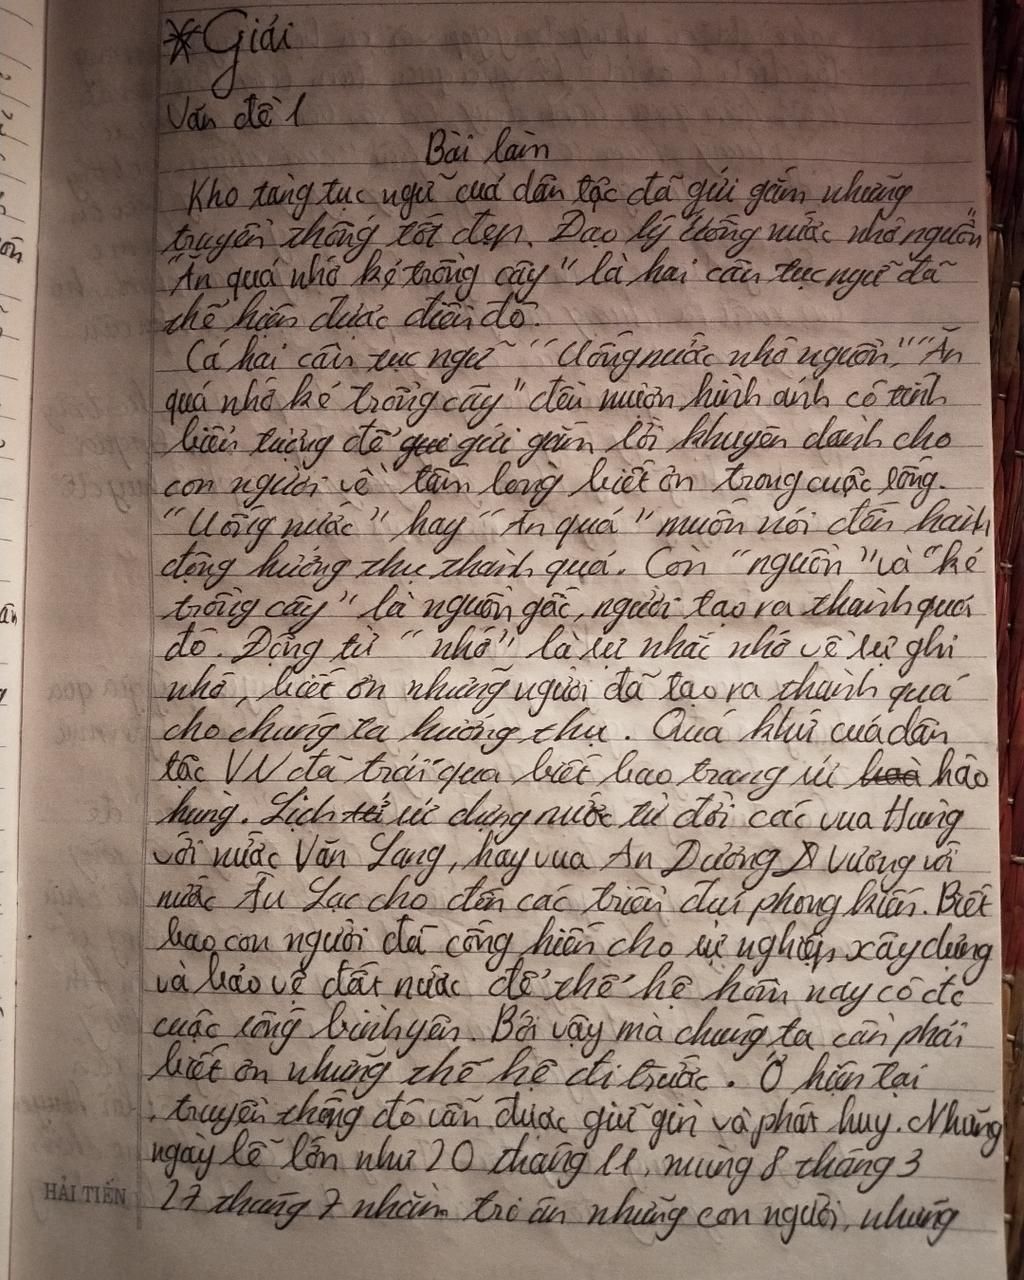 * Giải
Vấn đề 1
Bài làm
Kho tàng tục ngữ của dân tộc đã gửi gắm những
truyền thống tốt đẹp. Đạo lý Uống nước nhớ nguồn"
"Ăn quả nhớ kẻ trồng cây" là hai câu tục ngữ đã
thể hiện được điều đó.
Cả hai câu tục ngữ "Uống nước nhớ nguồn," "Ăn
quả nhớ kẻ trồng cây" đều mượn hình ảnh có tính
biểu tượng để gửi gắm lời khuyên dành cho
con người về tấm lòng biết ơn trong cuộc sống.
"Uống nước" hay "Ăn quả" muốn nói đến hành
động hưởng thụ thành quả. Còn "nguồn" và "kẻ
trồng cây" là nguồn gốc, người tạo ra thành quả
đó. Động từ "nhớ" là sự nhắc nhớ về sự ghi
nhớ, biết ơn những người đã tạo ra thành quả
cho chúng ta hưởng thụ. Quá khứ của dân
tộc VN đã trải qua biết bao trang sử hào
hùng. Lịch sử dựng nước từ đời các vua Hùng
với nước Văn Lang, hay vua An Dương Vương với
nước Âu Lạc cho đến các triều đại phong kiến. Biết
bao con người đã cống hiến cho sự nghiệp xây dựng
và bảo vệ đất nước để thế hệ hôm nay có đc
cuộc sống bình yên. Bởi vậy mà chúng ta cần phải
biết ơn những thế hệ đi trước. Ở hiện tại
, truyền thống đó vẫn được giữ gìn và phát huy. Những
ngày lễ lớn như 20 tháng 11, mùng 8 tháng 3
27 tháng 7 nhằm tri ân những con người, những
HẢI TIẾN